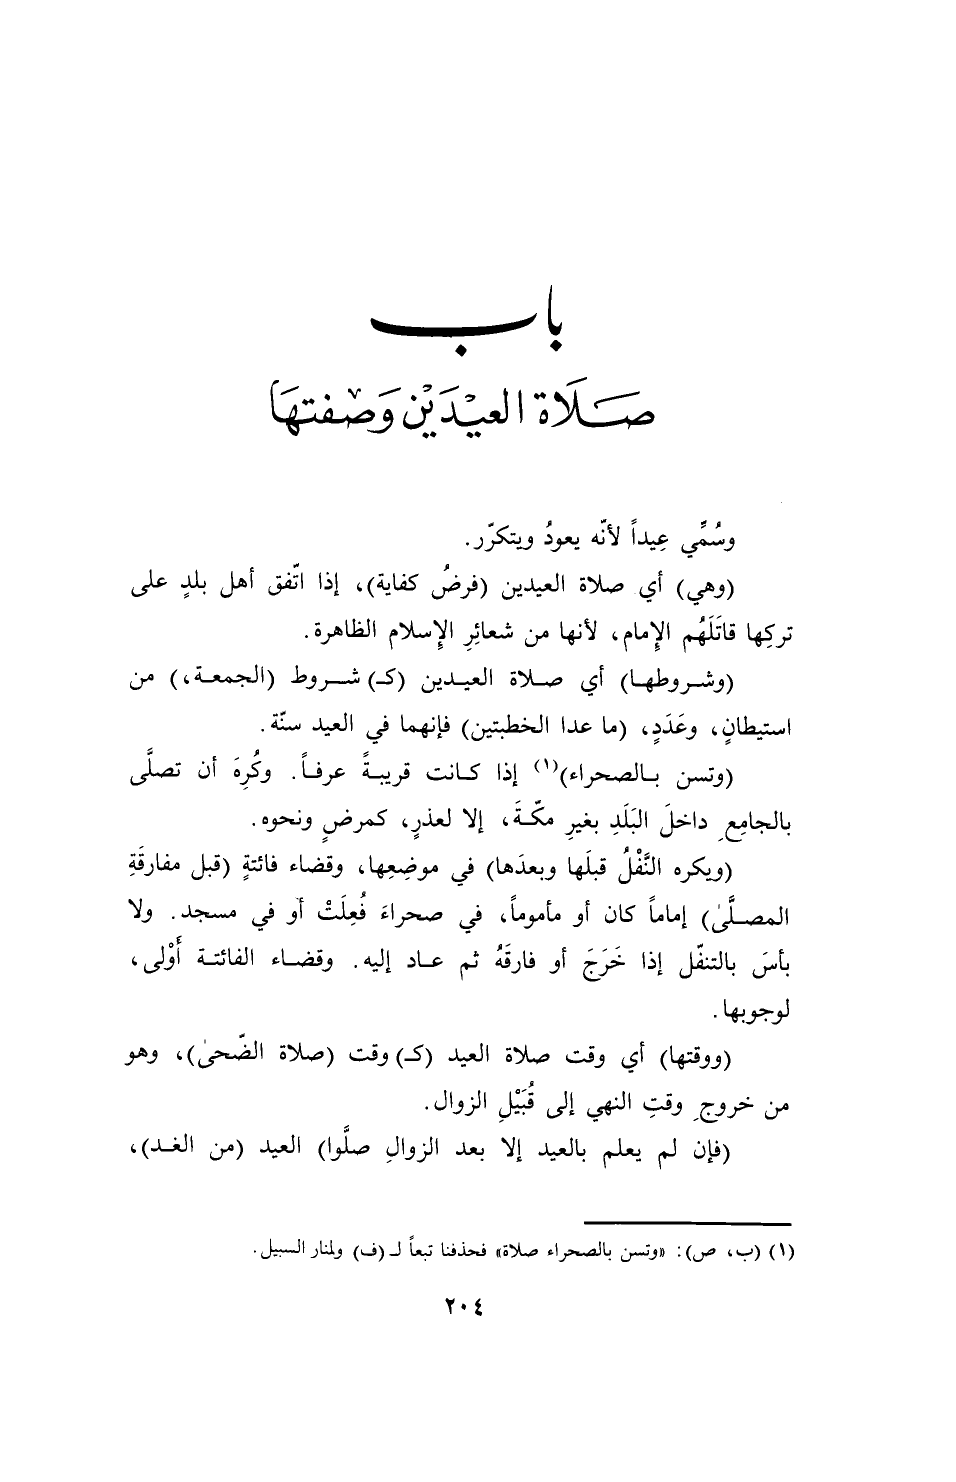 باب
صلاة العيدين وصفتها
وسُمِّي عِيداً لأنّه يعودُ ويتكرّر.
(وهي) أي صلاة العيدين (فرضُ كفاية)، إذا اتّفق أهل بلدٍ على
تركِها قاتَلَهُم الإمام، لأنها من شعائرِ الإسلام الظاهرة.
(وشروطها) أي صلاة العيدين (كـ) شروط (الجمعة،) من
استيطانٍ، وعَدَدٍ، (ما عدا الخطبتين) فإنهما في العيد سنّة.
(وتسن بالصحراء)(١) إذا كانت قريبةً عرفاً. وكُرِهَ أن تصلَّى
بالجامِعِ داخلَ البَلَدِ بغيرِ مكّةَ، إلا لعذرٍ، كمرضٍ ونحوه.
(ويكره النَّفْلُ قبلَها وبعدَها) في موضِعِها، وقضاء فائتةٍ (قبل مفارقَةِ
المصلَّىٰ) إماماً كان أو مأموماً، في صحراءَ فُعِلَتْ أو في مسجد. ولا
بأسَ بالتنفّل إذا خَرَجَ أو فارقَهُ ثم عاد إليه. وقضاء الفائتة أَوْلى،
لوجوبها.
(ووقتها) أي وقت صلاة العيد (كـ) وقت (صلاة الضّحىٰ)، وهو
من خروجِ وقتِ النهي إلى قُبَيْلِ الزوال.
(فإن لم يعلم بالعيد إلا بعد الزوالِ صلَّوا) العيد (من الغد)،
(١) (ب، ص): «وتسن بالصحراء صلاة» فحذفنا تبعاً لـ (ف) ولمنار السبيل.
٢٠٤